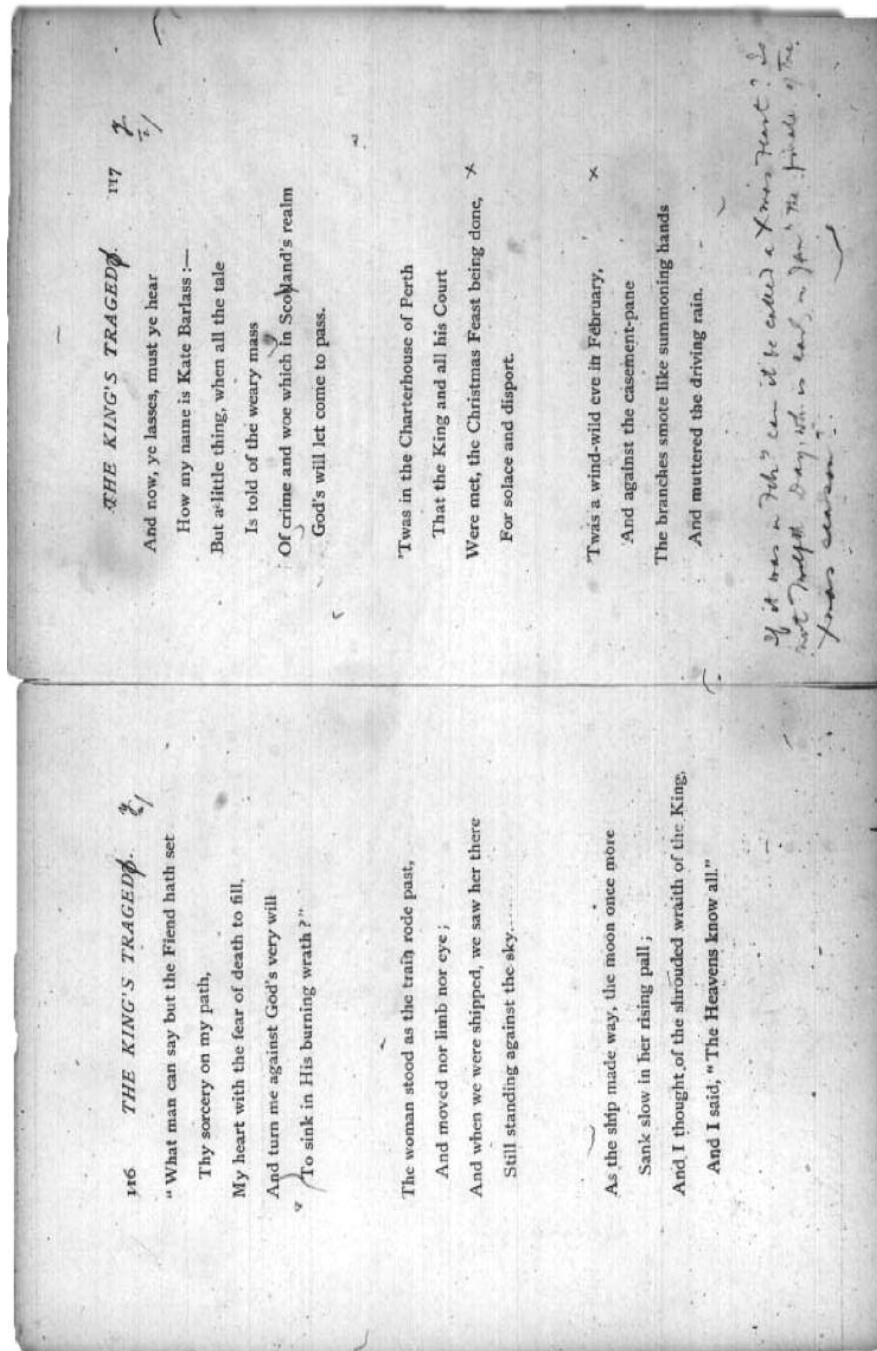 116 THE KING'S TRAGEDY.
"What man can say but the Fiend hath set
Thy sorcery on my path,
My heart with the fear of death to fill,
And turn me against God's very will
To sink in His burning wrath?"
The woman stood as the train rode past,
And moved nor limb nor eye;
And when we were shipped, we saw her there
Still standing against the sky.
As the ship made way, the moon once more
Sank slow in her rising pall;
And I thought of the shrouded wraith of the King,
And I said, "The Heavens know all."
THE KING'S TRAGEDY. 117
And now, ye lasses, must ye hear
How my name is Kate Barlass:—
But a little thing, when all the tale
Is told of the weary mass
Of crime and woe which in Scotland's realm
God's will let come to pass.
'Twas in the Charterhouse of Perth
That the King and all his Court
Were met, the Christmas Feast being done, x
For solace and disport.
'Twas a wind-wild eve in February, x
And against the casement-pane
The branches smote like summoning hands
And muttered the driving rain.
If it was in Feby can it be called a Xmas Feast? Is
not Twelfth Day, wh. is early in Jany the finale of the
Xmas season?